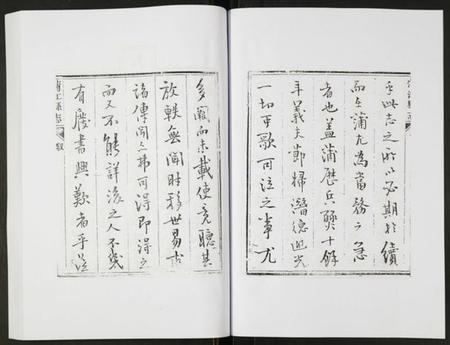 至此志之所以必期於續
而在蒲尤為當務之急
者也蓋蒲歷兵燹十餘
年義夫節婦潛德幽光
一切可歌可泣之事尤
多闕而未載使竟聽其
放軼無聞時移世易古
諸傳聞之弗可得即得之
而又不能詳後之人不幾
有廢書興歎者乎